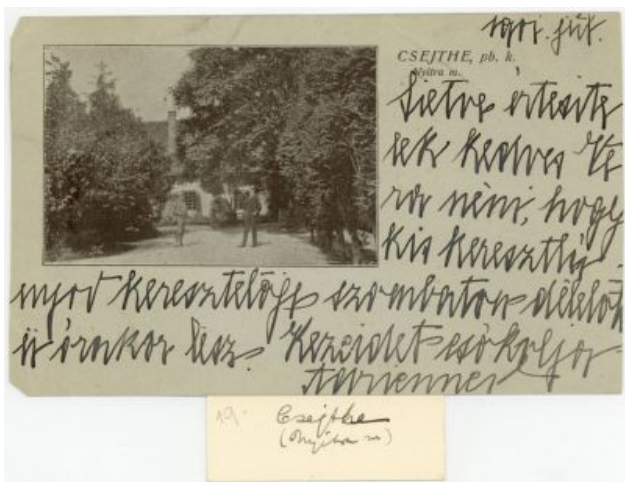 1901. júl.
CSEJTHE, pb. k.
Nyitra m.
Sietve értesite
lek kedves Ve
ra néni, hogy
kis keresztlá
nyod keresztelője szombaton délelőt
11 órakor lesz. Kezeidet csókolja
Adrienne
19
Csejthe
(Nyitra m)